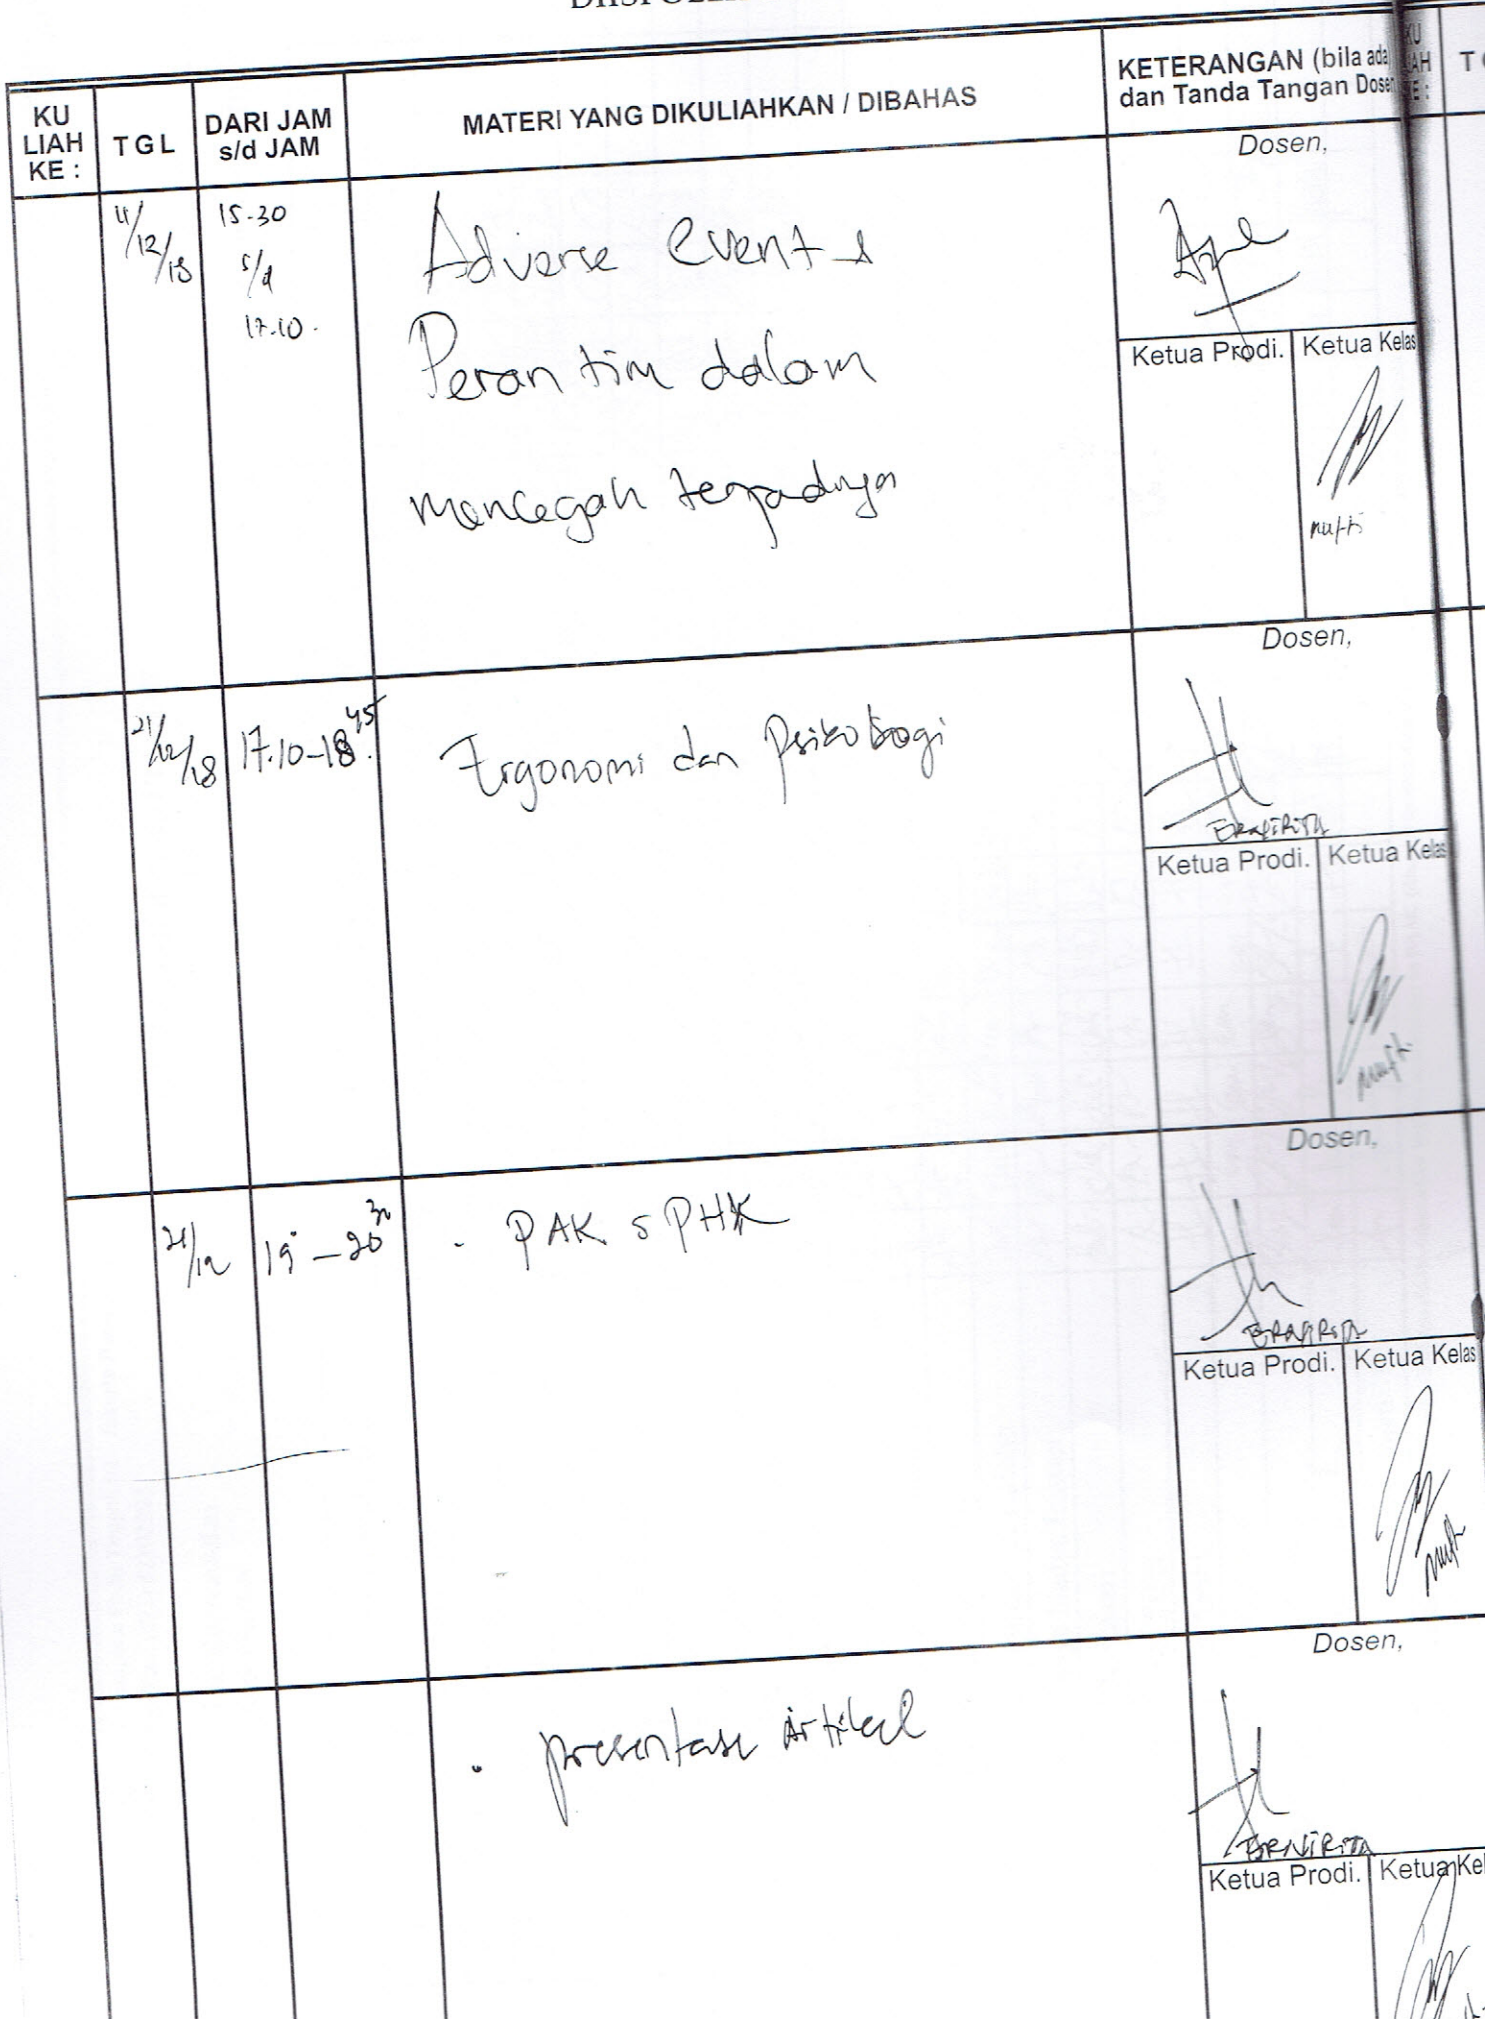 KU LIAH KE :
T G L
DARI JAM s/d JAM
MATERI YANG DIKULIAHKAN / DIBAHAS
KETERANGAN (bila ada)
dan Tanda Tangan Dosen
KU
LIAH
KE :
T
Dosen,
11/12/18
15.30
s/d
17.10.
Adverse event &
Peran tim dalam
mencegah terjadinya
Ketua Prodi.
Ketua Kelas
mufti
Dosen,
21/12/18
17.10-18 45
Ergonomi dan Psikologi
ERNIRITA
Ketua Prodi.
Ketua Kelas
mufti
Dosen,
21/12
19 - 20 30
. PAK & PHK
ERNIRITA
Ketua Prodi.
Ketua Kelas
mufti
Dosen,
. presentase Artikel
ERNIRITA
Ketua Prodi.
Ketua Kel